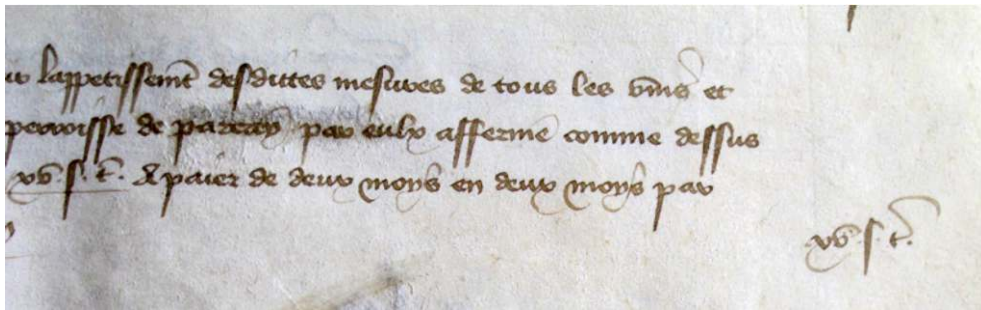 lappetissemt̄ desdites mesures de tous les vīns et
perroisse de parcay par eulx affermé comme dessus
xv s. t. A paier de deux moys en deux moys par
xv s. t.